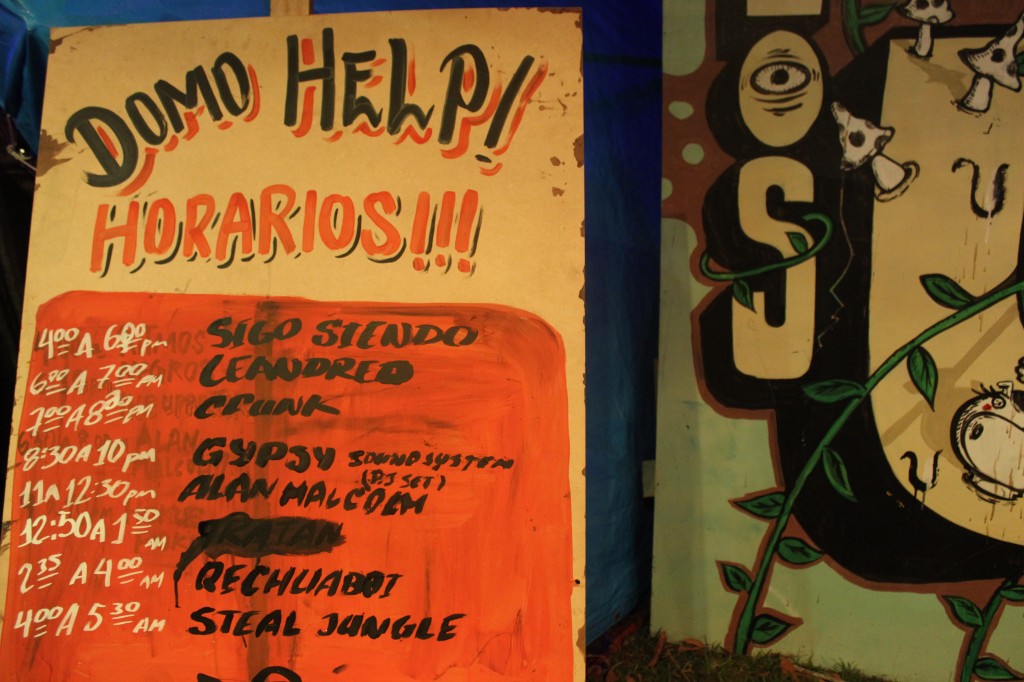 DOMO HELP!
HORARIOS!!!
4:00 A 6:00 pm SIGO SIENDO
6:00 A 7:00 AM LEANDREO
7:00 A 8:20 PM CRUNK
8:30 A 10 pm GYPSY SOUND SYSTEM
(DJ SET)
11 A 12:30 pm ALAN MALCOLM
12:50 A 1:50 AM
2:35 A 4:00 AM QECHUABOI
4:00 A 5:30 AM STEAL JUNGLE
OS